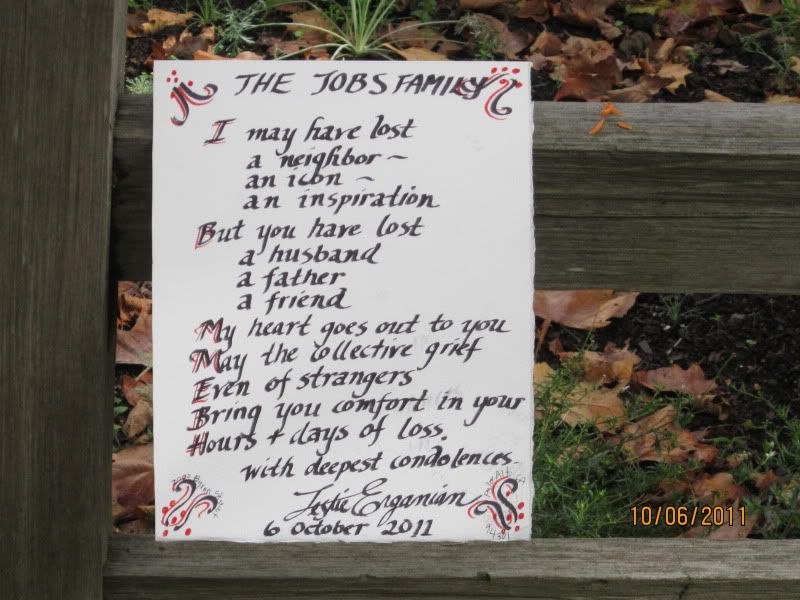 THE JOBS FAMILY
I may have lost
a neighbor ~
an icon ~
an inspiration
But you have lost
a husband
a father
a friend
My heart goes out to you
May the collective grief
Even of strangers
Bring you comfort in your
Hours + days of loss.
with deepest condolences
Leslie Erganian
6 October 2011
10/06/2011